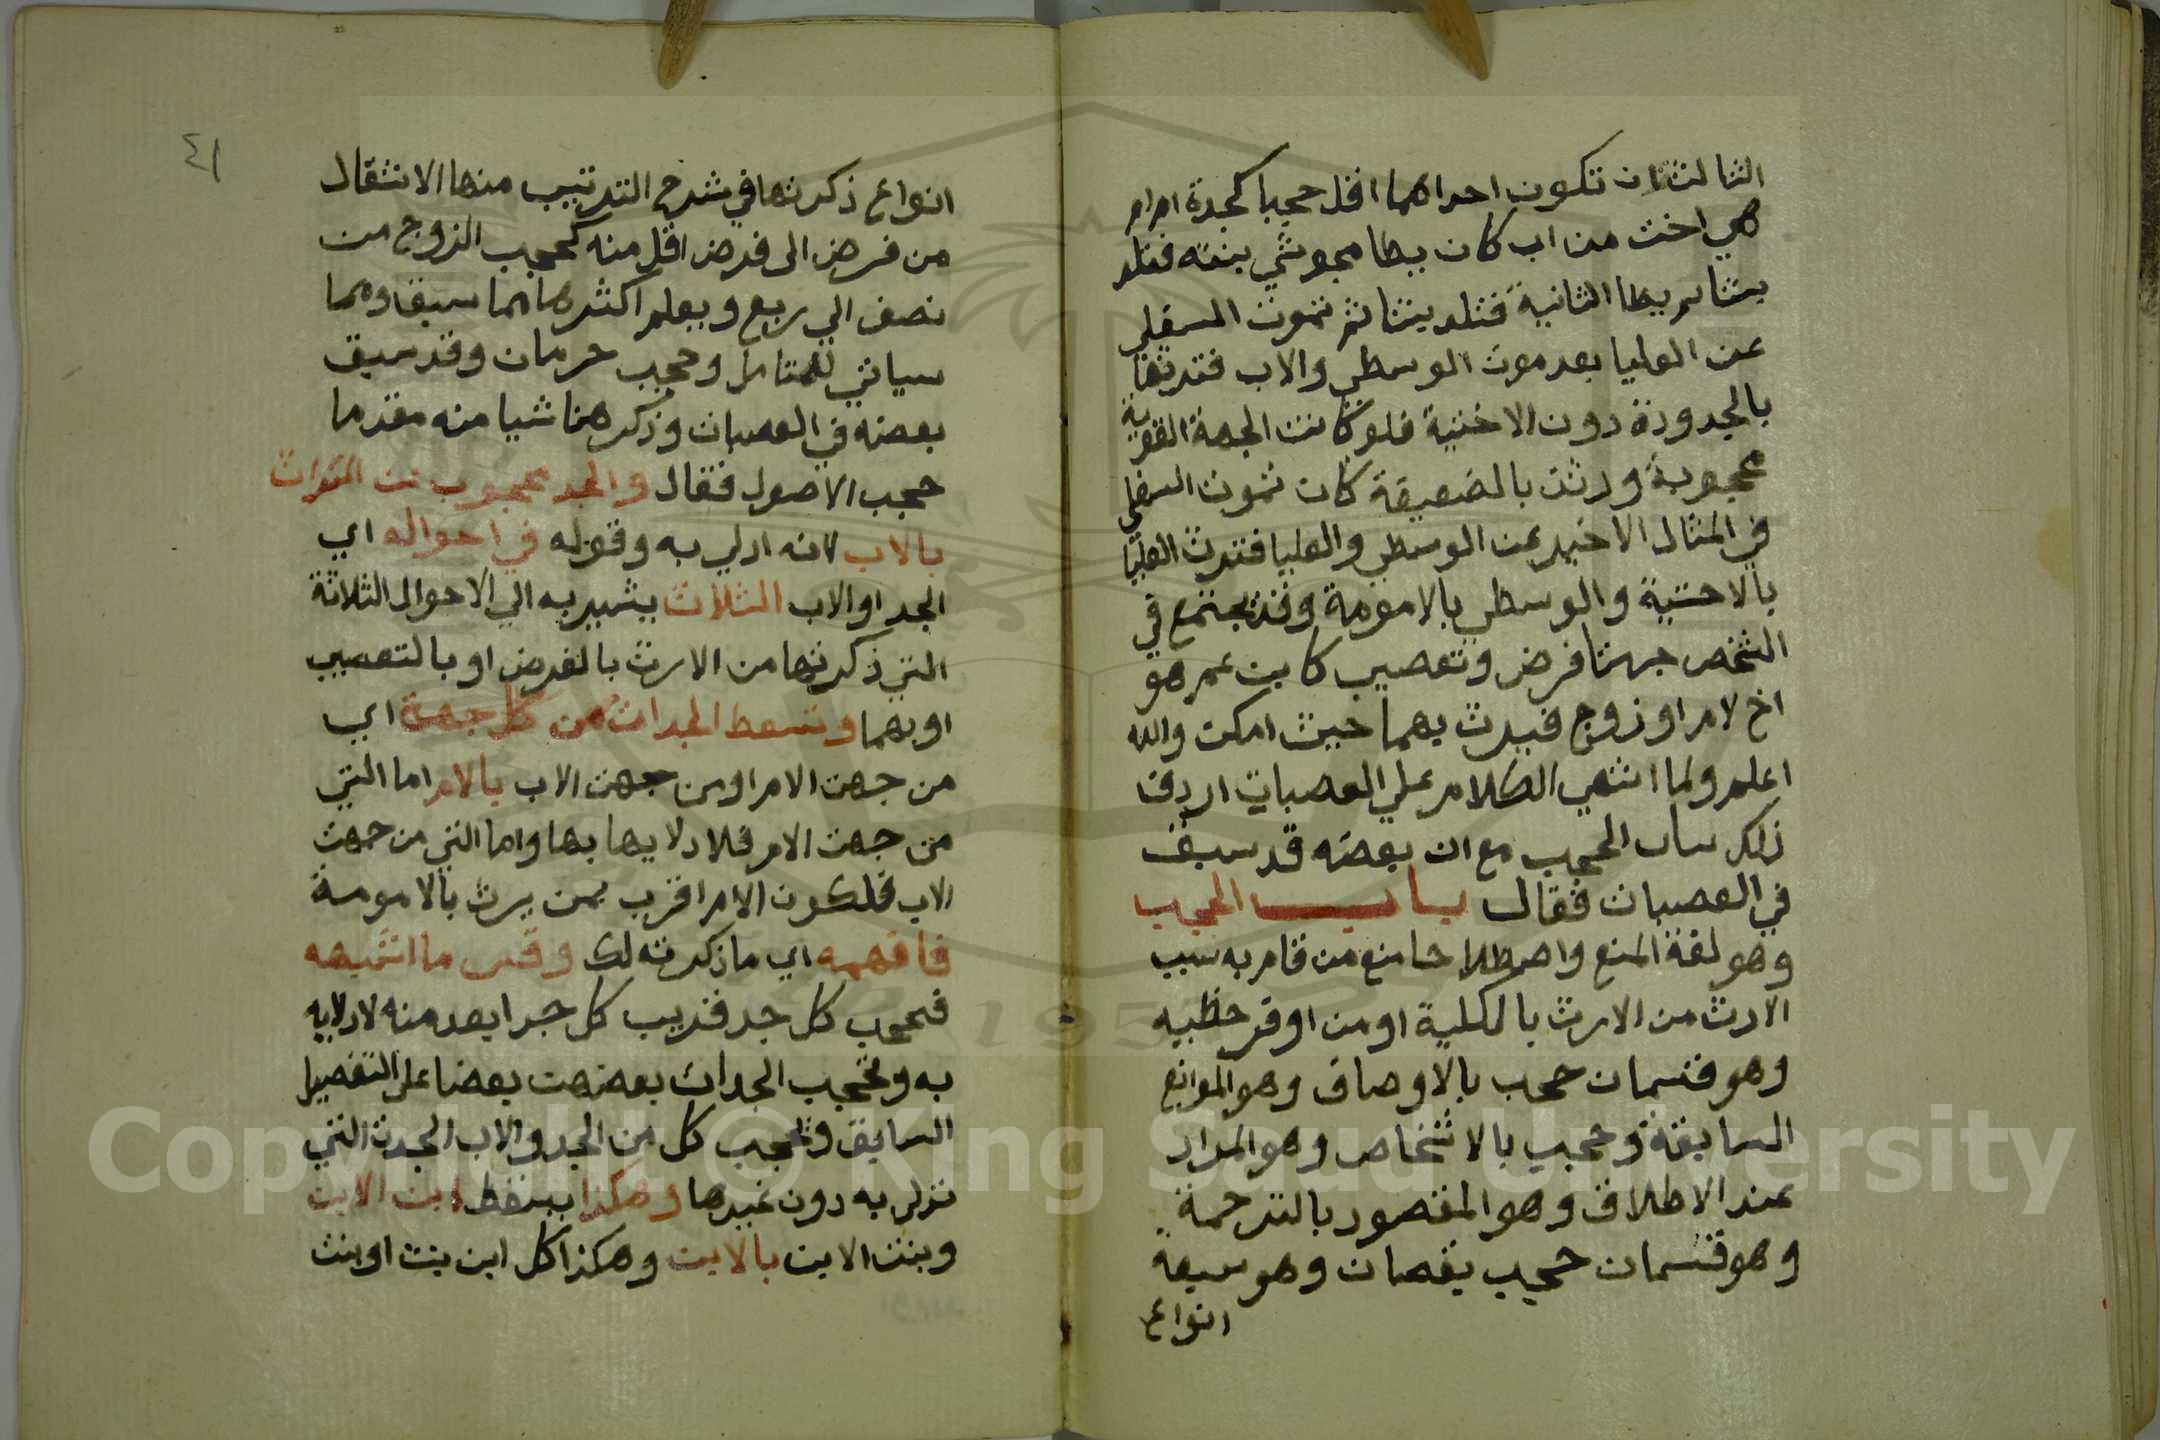 الثالث ان تكون احداهما اقل حجبا كجدة ام ام
هي اخت من اب كان يطا مجوسي بنته فتلد
بنتا ثم يطا الثانية فتلد بنتا ثم تموت السفلي
عن العليا بعد موت الوسطي والاب فترثها
بالجدودة دون الاختية فلو كانت الجهة القوية
محجوبة ورثت بالضعيفة كان تموت السفلي
في المثال الاخير عن الوسطي والعليا فترث العليا
بالاختية والوسطي بالامومة وقد يجتمع في
الشخص جهتا فرض وتعصيب كابن عم هو
اخ لام او زوج فيرث بهما حيث امكن والله
اعلم ولما انتهي الكلام علي العصبات اردف
ذلك بباب الحجب مع ان بعضه قد سبق
في العصبات فقال باب الحجب
وهو لغة المنع واصطلاحا منع من قام به سبب
الارث من الارث بالكلية او من اوفر حظيه
وهو قسمان حجب بالاوصاف وهو الموانع
السابقة وحجب بالاشخاص وهو المراد
عند الاطلاق وهو المقصود بالترجمة
وهو قسمان حجب نقصان وهو سبعة
انواع
٤١
انواع ذكرتها في شرح الترتيب منها الانتقال
من فرض الى فرض اقل منه كحجب الزوج من
نصف الي ربع ويعلم اكثرها مما سبق ومما
سياتي للمتامل وحجب حرمان وقد سبق
بعضه في العصبات وذكر هنا شيا منه مقدما
حجب الاصول فقال والجد محجوب عن الميراث
بالاب لانه ادلي به وقوله في احواله اي
الجد او الاب الثلاث يشير به الي الاحوال الثلاثة
التي ذكرتها من الارث بالفرض او بالتعصيب
او بهما وتسقط الجدات من كل جهة اي
من جهت الام او من جهت الاب بالام اما التي
من جهت الام فلادلايها بها واما التي من جهت
الاب فلكون الام اقرب من يرث بالامومة
فافهمه اي ما ذكرته لك وقس ما اشبهه
فيحجب كل جد قريب كل جد ابعد منه لادلايه
به وتحجب الجدات بعضهن بعضا على التفصيل
السابق ويحجب كل من الجد والاب الجدت التي
تدلي به دون غيرها وهكذا يسقط ابن الابن
وبنت الابن بالابن وهكذا كل ابن بنت او بنت
Copyright © King Saud University
1957